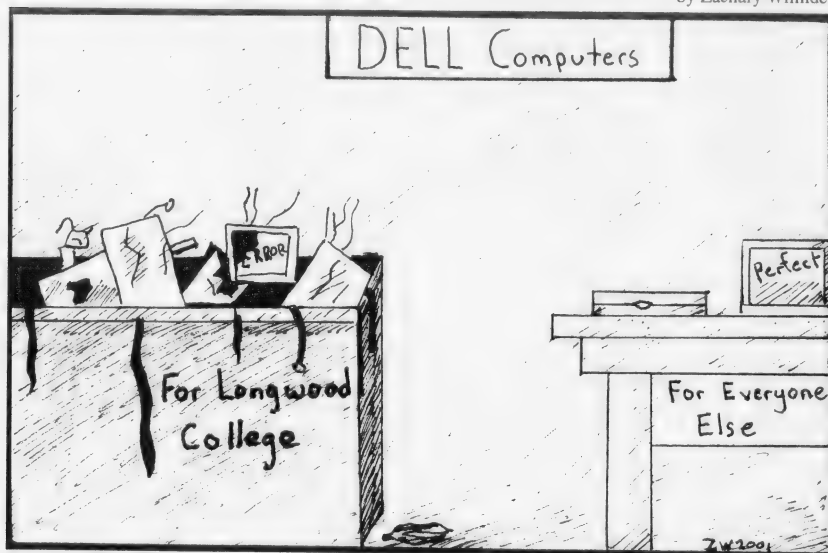 by Zachary
DELL Computers
ERROR
perfect
For Longwood
College
For Everyone
Else
ZW2001